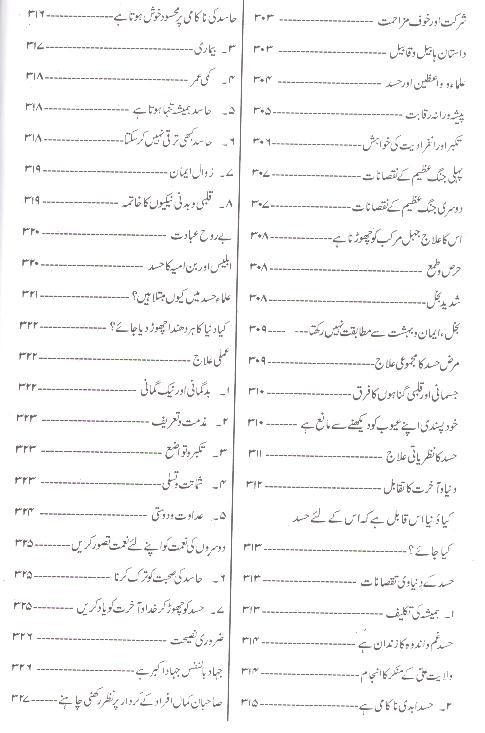 شرکت اور خوف مزاحمت ---------- ۳۰۳
داستان ہابیل و قابیل ---------- ۳۰۳
علماء و واعظین اور حسد ---------- ۳۰۴
پیشہ ورانہ رقابت ---------- ۳۰۵
تکبر اور انفرادیت کی خواہش ---------- ۳۰۶
پہلی جنگ عظیم کے نقصانات ---------- ۳۰۷
دوسری جنگ عظیم کے نقصانات ---------- ۳۰۷
اس کا علاج جہل مرکب کو چھوڑنا ہے ---------- ۳۰۸
حرص و طمع ---------- ۳۰۸
شدید بخل ---------- ۳۰۸
بخل، ایمان و بہشت سے مطابقت نہیں رکھتا ---------- ۳۰۹
مرض حسد کا مجموعی علاج ---------- ۳۰۹
جسمانی اور قلبی گناہوں کا فرق ---------- ۳۱۰
خود پسندی اپنے عیوب کو دیکھنے سے مانع ہے ---------- ۳۱۰
حسد کا نظریاتی علاج ---------- ۳۱۱
دنیا و آخرت کا تقابل ---------- ۳۱۲
کیا دُنیا اس قابل ہے کہ اس کے لئے حسد
کیا جائے؟ ---------- ۳۱۳
حسد کے دنیاوی نقصانات ---------- ۳۱۳
۱۔ ہمیشہ کی تکلیف ---------- ۳۱۳
حسد غم و اندوہ کا زندان ہے ---------- ۳۱۴
ولایت علیؑ کے منکر کا انجام ---------- ۳۱۴
۲۔ حسد ابدی ناکامی ہے ---------- ۳۱۵
حاسد کی ناکامی پر محسود خوش ہوتا ہے ---------- ۳۱۶
۳۔ بیماری ---------- ۳۱۷
۴۔ کمی عمر ---------- ۳۱۸
۵۔ حاسد ہمیشہ تنہا ہوتا ہے ---------- ۳۱۸
۶۔ حاسد کبھی ترقی نہیں کر سکتا ---------- ۳۱۸
۷۔ زوال ایمان ---------- ۳۱۹
۸۔ قلبی و بدنی نیکیوں کا خاتمہ ---------- ۳۱۹
بے روح عبادت ---------- ۳۲۰
ابلیس اور بن امیہ کا حسد ---------- ۳۲۰
علماء حسد میں کیوں مبتلا ہیں؟ ---------- ۳۲۱
کیا دنیا کا ہر دھندا چھوڑ دیا جائے؟ ---------- ۳۲۲
عملی علاج ---------- ۳۲۲
۱۔ بدگمانی اور نیک گمانی ---------- ۳۲۲
۲۔ مذمت و تعریف ---------- ۳۲۳
۳۔ تکبر و تواضع ---------- ۳۲۳
۴۔ شماتت و تسلی ---------- ۳۲۳
۵۔ عداوت و دوستی ---------- ۳۲۴
دوسروں کی نعمت کو اپنے لئے نعمت تصور کریں ---------- ۳۲۵
۶۔ حاسد کی صحبت کو ترک کرنا ---------- ۳۲۵
۷۔ حسد کو چھوڑ کر خدا و آخرت کو یاد کریں ---------- ۳۲۵
ضروری نصیحت ---------- ۳۲۶
جہاد بالنفس جہاد اکبر ہے ---------- ۳۲۶
صاحبان کمال افراد کے کردار پر نظر رکھنی چاہئے ---------- ۳۲۷